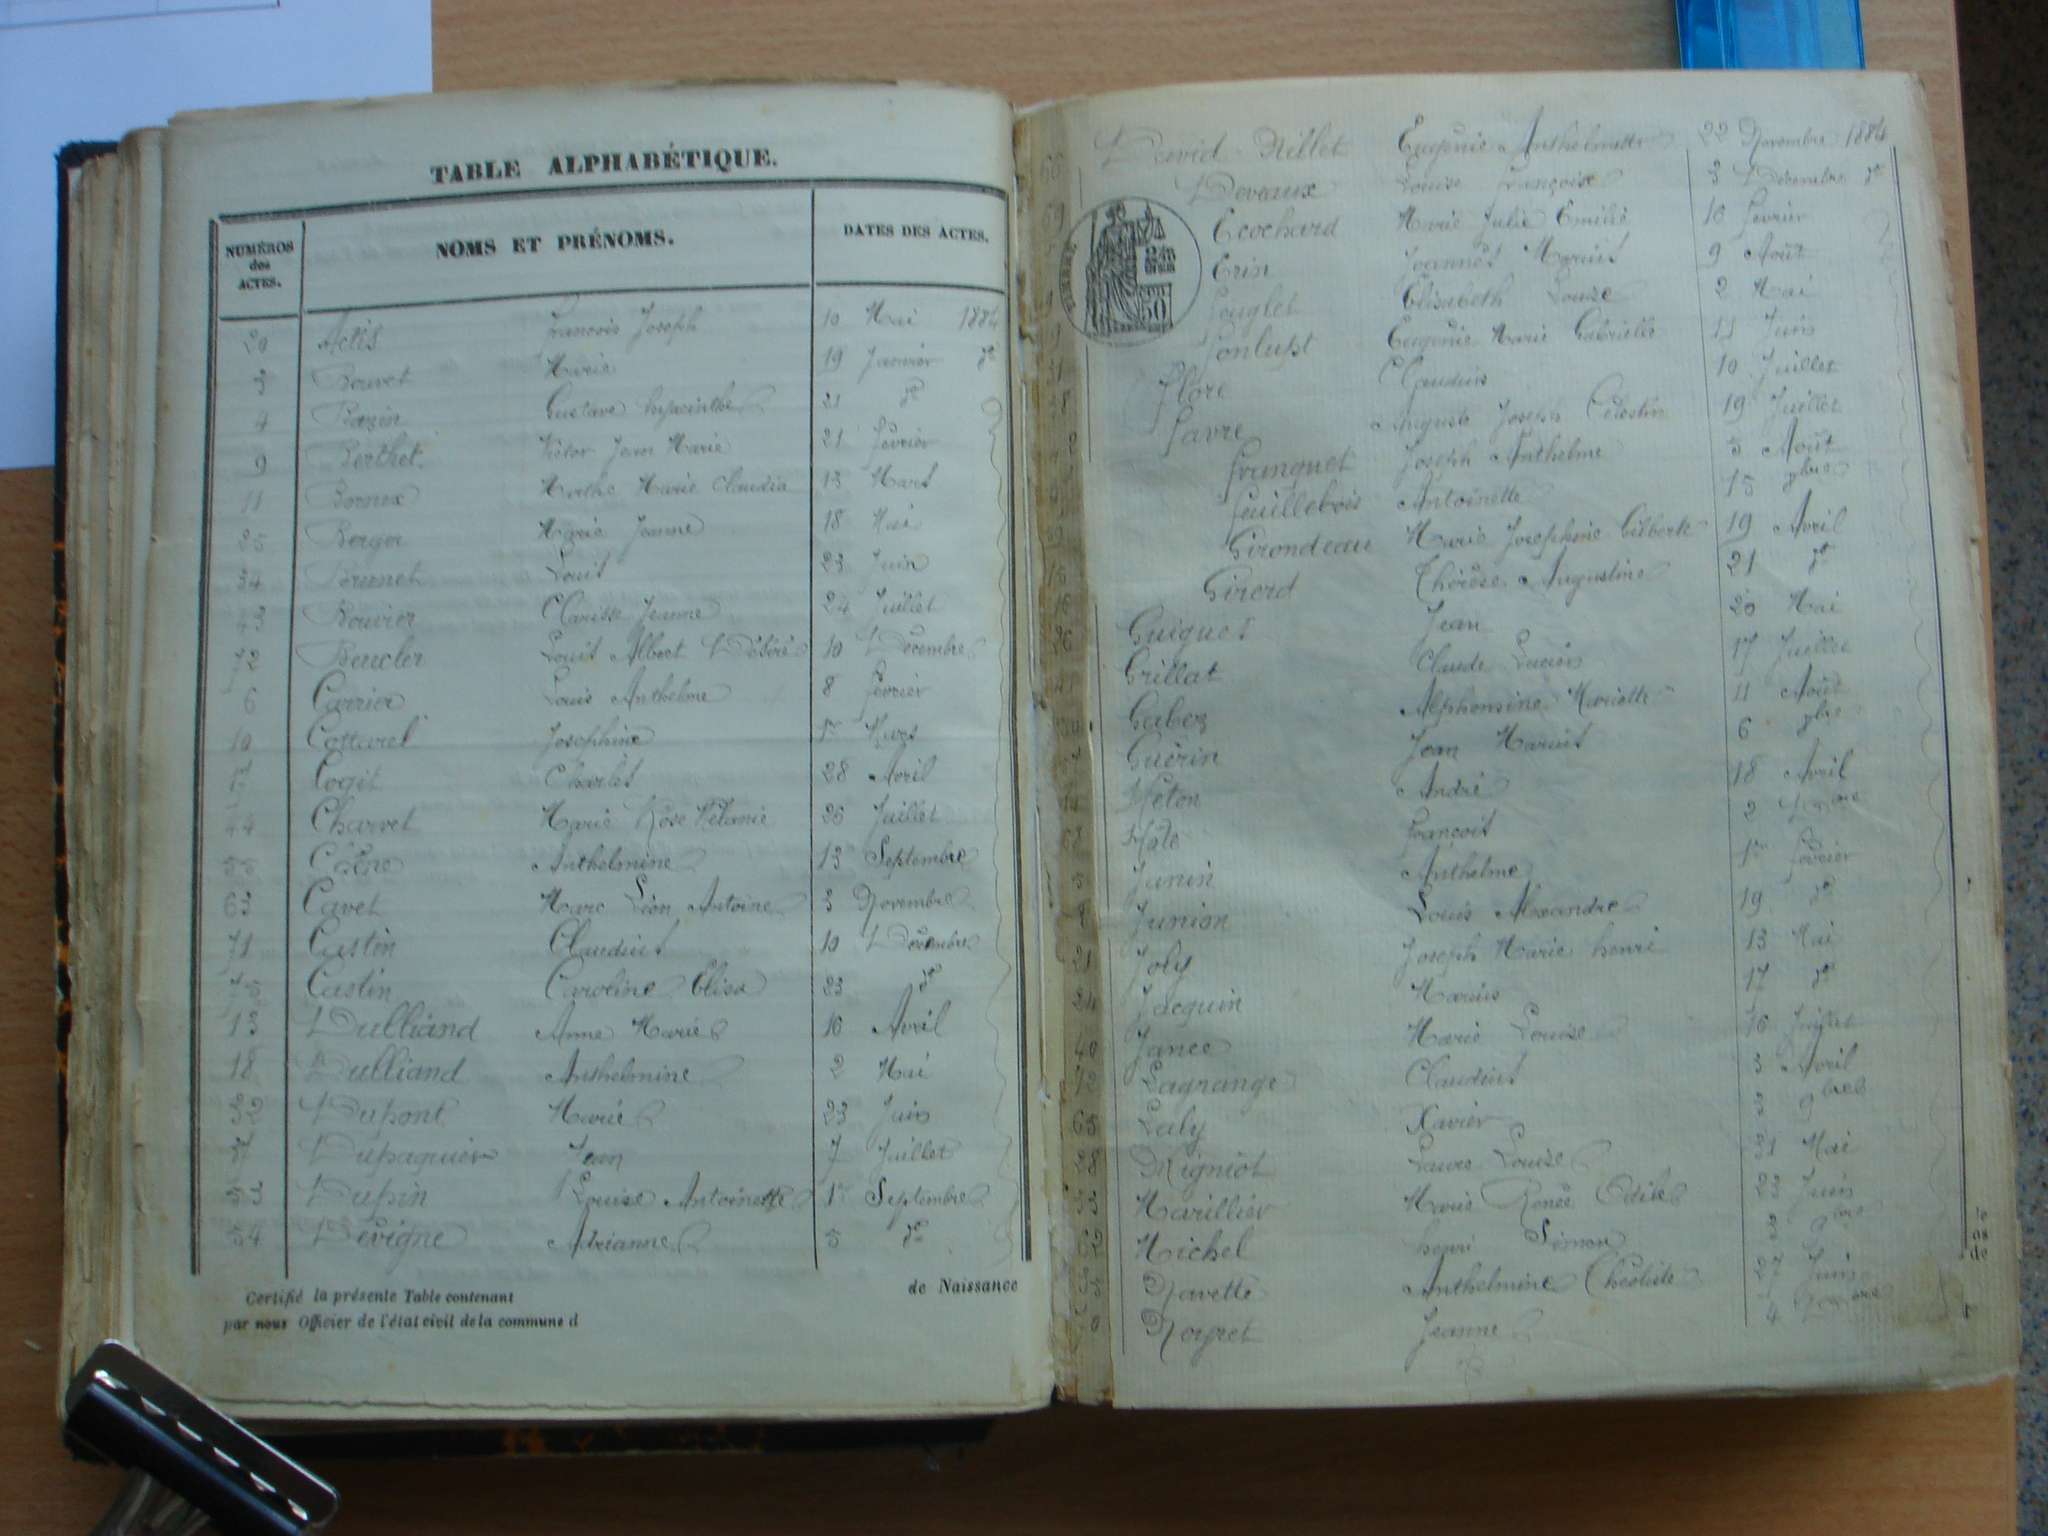 TABLE ALPHABÉTIQUE.
NUMÉROS des ACTES. NOMS ET PRÉNOMS. DATES DES ACTES.
20 Actis François Joseph 10 Mai 1884
3 Bouvet Marie 19 Janvier do
4 Bazin Gustave hyacinthe 21 do
9 Berthet Victor Jean Marie 21 février
11 Marthe Marie Claudia 13 Mars
25 Berger Marie Jeanne 18 Mai
34 Brunet Louis 23 Juin
43 Bouvier Clarisse Jeanne 24 Juillet
72 Beucler Louis Albert Désiré 10 Décembre
6 Carrier Louis Anthelme 8 février
10 Cottarel Josephine 1er Mars
17 Cogit Charles 28 Avril
44 Charvet Marie Rose Mélanie 26 Juillet
55 Anthelmine 13 Septembre
63 Cavet Marc Léon Antoine 3 Novembre
71 Castin Claudius 10 Décembre
75 Castin Caroline Elisa 23 do
13 Dulliand Anne Marie 16 Avril
18 Dulliand Anthelmine 2 Mai
32 Dupont Marie 23 Juin
37 Dupaquier Jean 7 Juillet
53 Dupin Louise Antoinette 1er Septembre
54 Devigne Adrianne 5 do
Certifié la présente Table contenant de Naissance
par nous Officier de l'état civil de la commune d
David-Nillet Eugénie Anthelmette 22 Novembre 1884
69 Deveaux Louise françoise 3 Décembre do
Ecochard Marie Julie Emilie 10 février
Erin Joannès Marius 9 Août
fouglet Elisabeth Louise 2 Mai
fonlupt Eugénie Marie Gabrielle 11 Juin
flore Claudius 10 Juillet
favre Auguste Joseph Célestin 19 Juillet
franquet Joseph Anthelme 5 Août
feuillebois Antoinette 15 7bre
Girondeau Marie Josephine Gilberte 19 Avril
15 Girerd Thérèse Augustine 21 do
16 Guiguet Jean 20 Mai
26 Grillat Claude Lucien 17 Juillet
Guber Alphonsine Mariette 11 Août
Guérin Jean Marius 6 7bre
14 Héton André 18 Avril
68 Hôte françois 2
5 Janin Anthelme 1er février
8 Junion Louis Alexandre 19 do
21 Joly Joseph Marie henri 13 Mai
24 Jacquin Marius 17 do
40 Jance Marie Louise 16 Juillet
12 Lagrange Claudius 3 Avril
65 Laly Xavier 3 9bre
28 Migniot Laure Louise 31 Mai
33 Marillier Marie Renée Odile 23 Juin
Michel henri Simon 3 9bre
Navette Anthelmine Théotiste 27 Juin
Neyret Jeanne 4